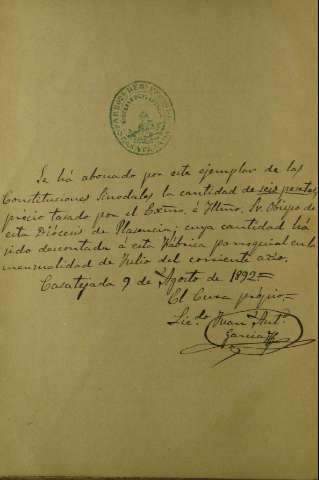 Se há abonado por este ejemplar de las
Constituciones Sinodales la cantidad de seis pesetas,
précio tasado por el Excmo. é Iltmo. Sr. Obispo de
esta Diócesis de Plasencia; cuya cantidad há
sido descontada á esta Fábrica parroquial en la
mensualidad de Julio del corriente año.
Casatejada 9 de Agosto de 1892=
El Cura própio=
Lic.do Juan Ant.º
García